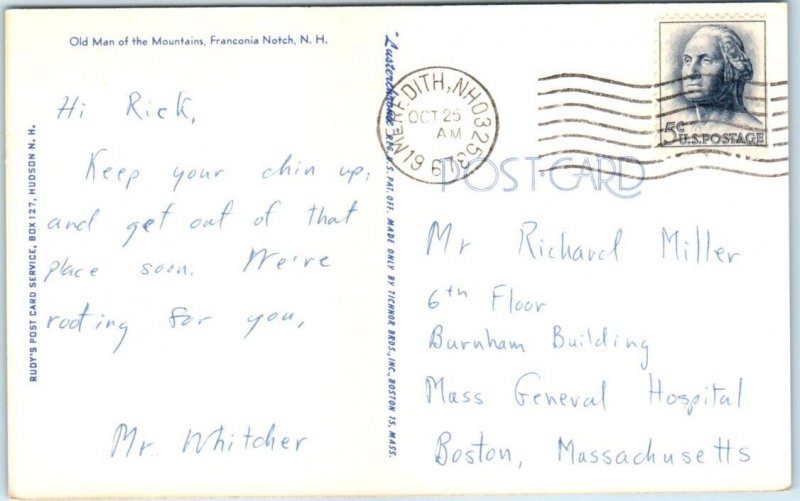 Old Man of the Mountains, Franconia Notch, N. H.
Hi Rick,
Keep your chin up,
and get out of that
place soon. We're
rooting for you,
Mr. Whitcher
RUDY'S POST CARD SERVICE, BOX 127, HUDSON N. H.
"Lusterchrome" REG. U.S. PAT. OFF. MADE ONLY BY TICHNOR BROS., INC., BOSTON 15, MASS.
MEREDITH, NH 03253
OCT 25
AM
5¢
U.S. POSTAGE
POST CARD
Mr Richard Miller
6th Floor
Burnham Building
Mass General Hospital
Boston, Massachusetts